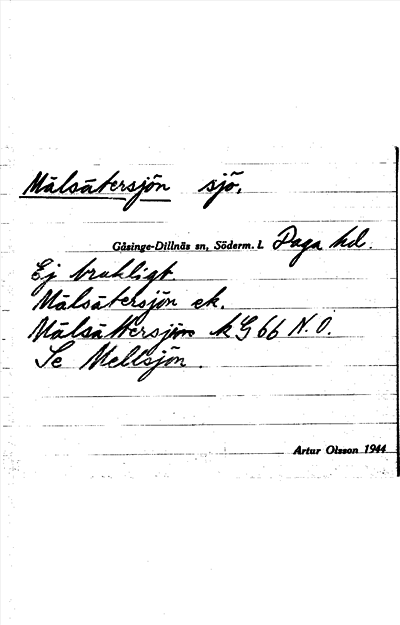 Mälsätersjön sjö,
Gåsinge-Dillnäs sn, Söderm. l. Daga hd.
Ej brukligt.
Mälsätersjön ek.
Mälsättersjön kG 66 N.O.
Se Mellsjön.
Artur Olsson 1944